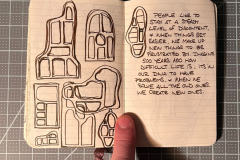 PEOPLE LIKE TO
STAY AT A STEADY
LEVEL OF DISCONTENT.
WHEN THINGS GET
EASIER, WE MAKE UP
NEW THINGS TO BE
FRUSTRATED BY. IMAGINE
500 YEARS AGO HOW
DIFFICULT LIFE IS. ITS IN
OUR DNA TO HAVE
PROBLEMS. WHEN WE
SOLVE ALL THE OLD ONES
WE CREATE NEW ONES.